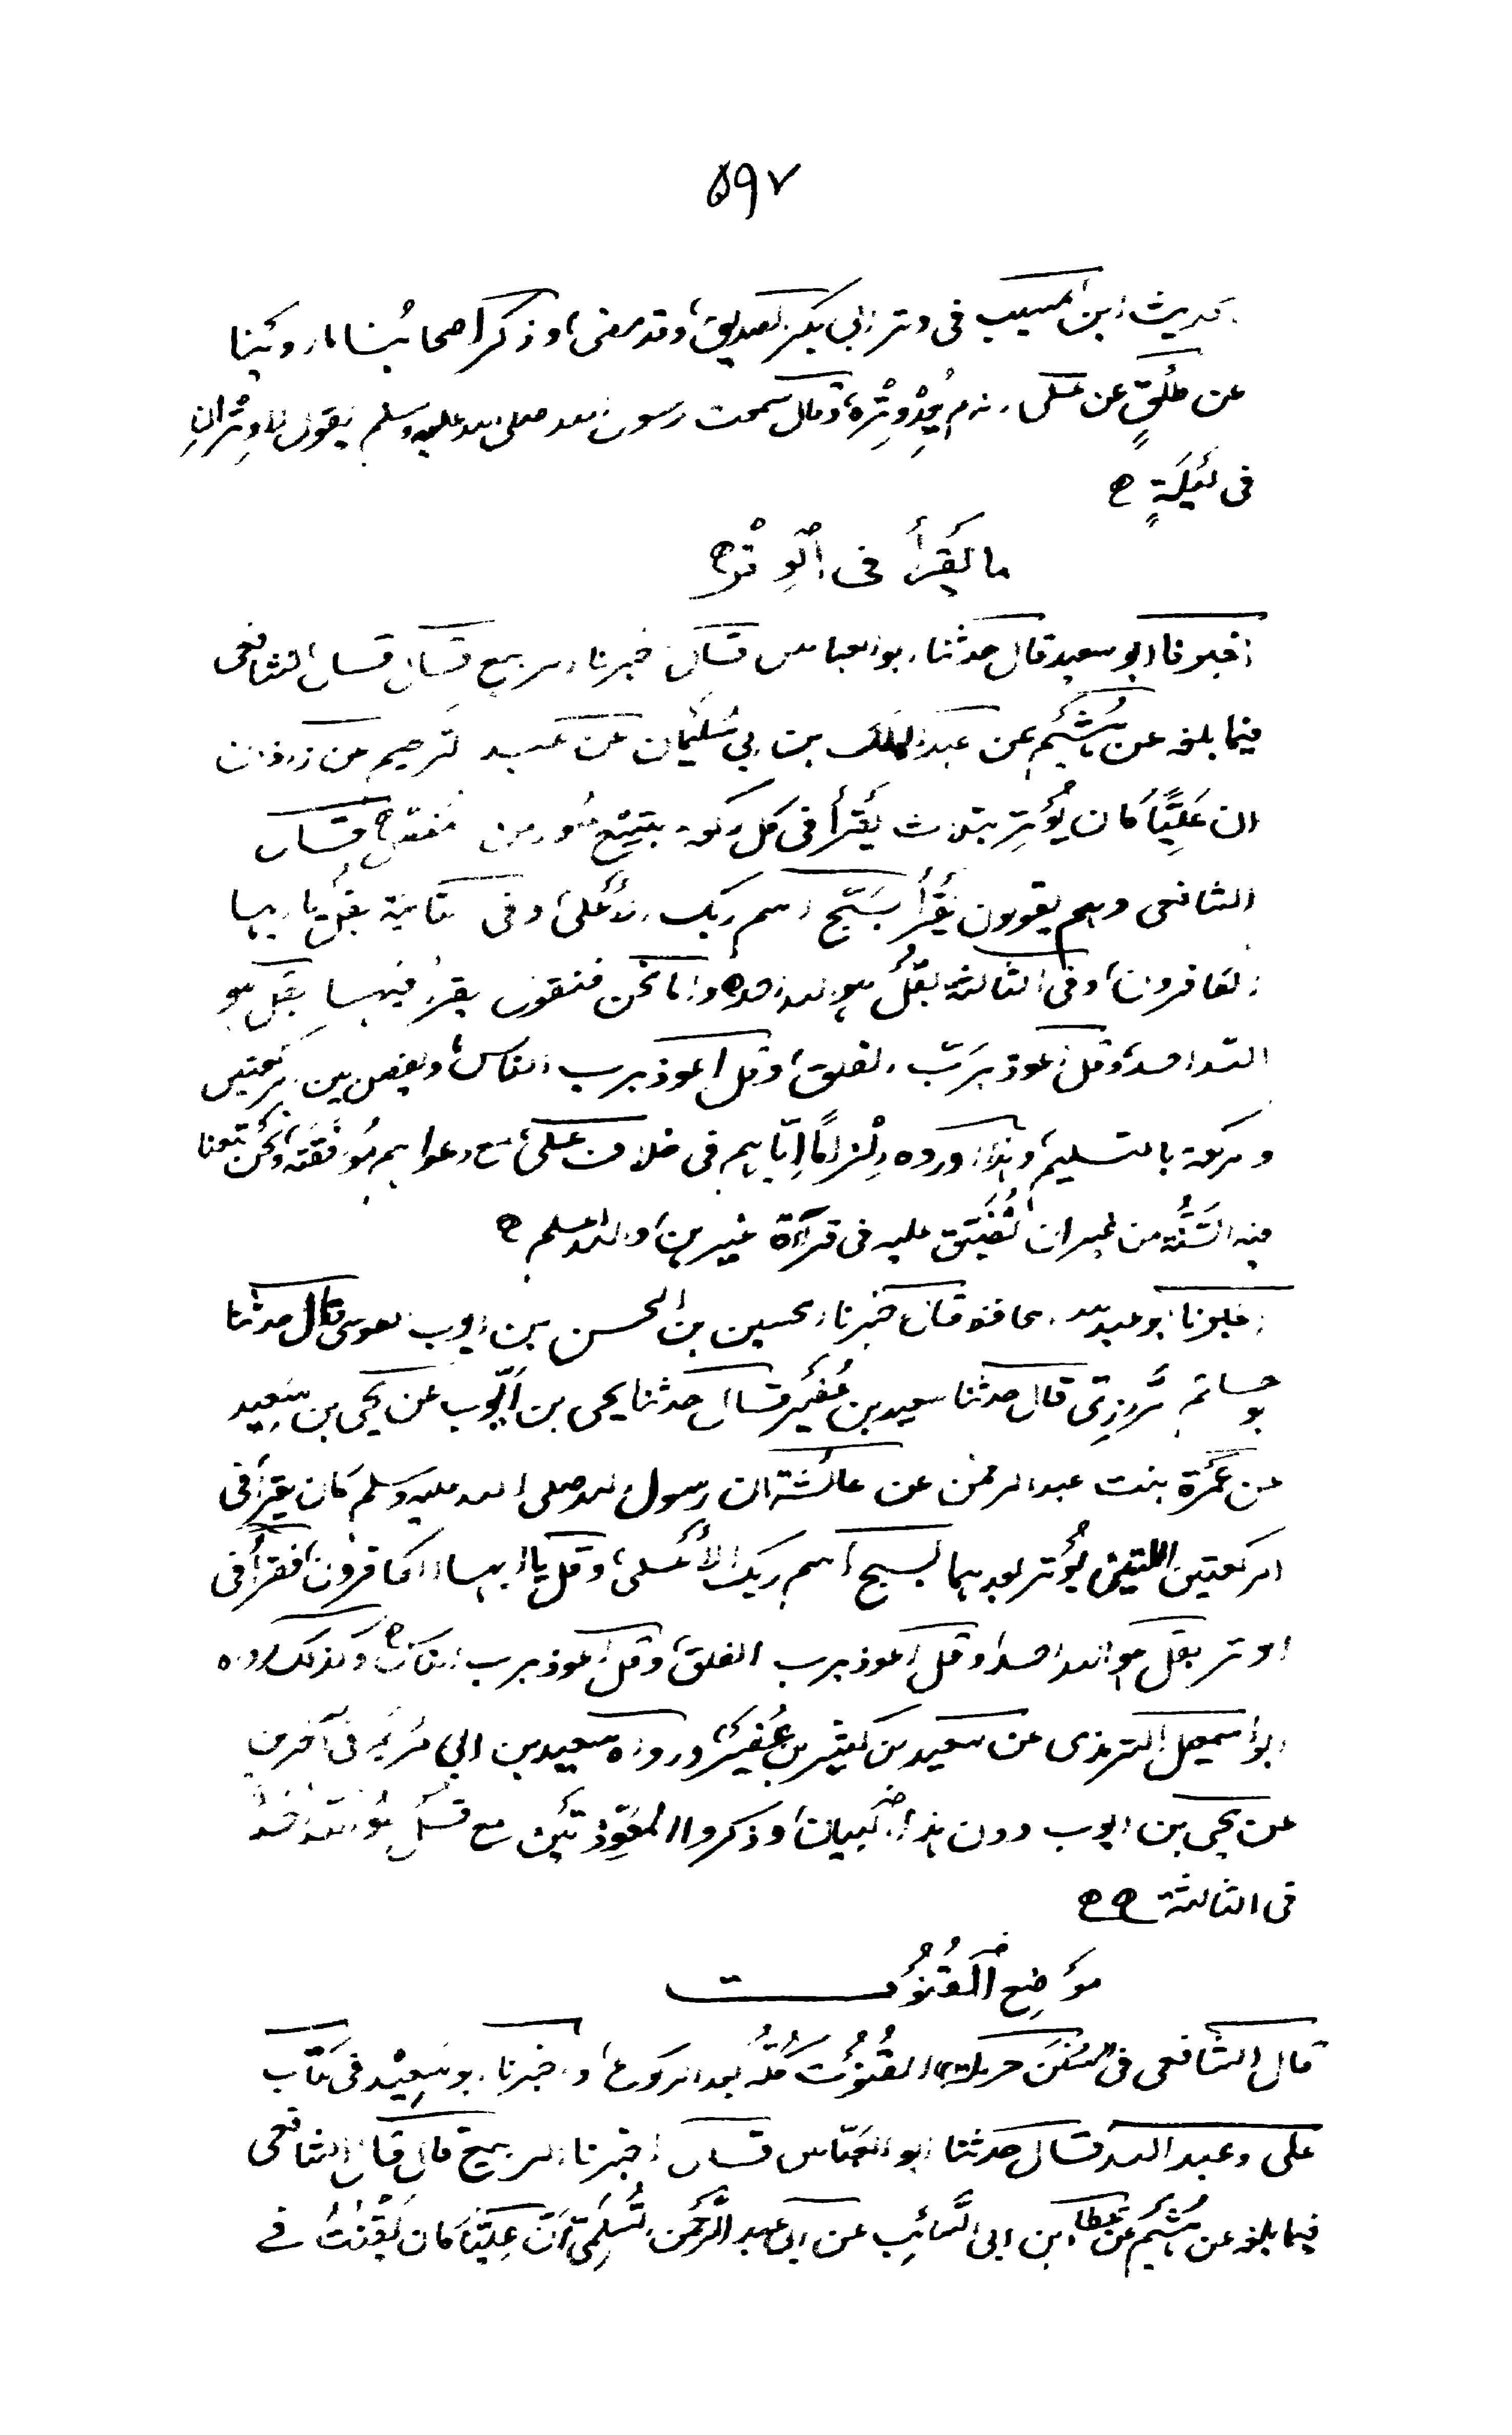 ۵۹۷
حديث ابن المسيب فى وتر ابى بكر الصديق، وقد مضى، وذكر اصحابُنا ما روَيْنا
عن طَلْقٍ عن على انه لم يُعِدْ وِتْرَه، وقال سمعت رسول الله صلى الله عليه وسلم يقول لا وِتْرانِ
فى لَيْلَةٍ
ما يُقرأ فى الوِتْر
اخبرنا ابو سعيد قال حدثنا ابو العباس قال اخبرنا الربيع قال قال الشافعى
فيما بلغه عن هُشَيْم عن عبد الملك بن ابى سُلَيْمان عن عبد الرحيم عن زاذان
ان عَلِيًّا كان يُوْتِر بثلاث يَقْرأ فى كل ركعة بتِسْع سُوَر من المفصل قال
الشافعى وهم يقولون يَقْرَأ بسَبِّح اسم ربك الأعْلى، وفى الثانية بقُلْ يا ايها
الكافرون، وفى الثالثة بقُلْ هو الله احد واما نحن فنقول يقرأ فيها بقُل هو
الله احد، وقل اعوذ برَبّ الفلق، وقل اعوذ برب الناس، ويفصل بين الركعتين
والركعة بالتسليم، وهذا اورده اِلْزامًا اِيّاهم فى خلاف على مع دعواهم مُوافَقَتَه، ونحن تَبِعْنا
فيه السُّنّة من غير ان نُضَيِّق عليه فى قرآءة غيرهن، والله اعلم
اخبرنا ابو عبد الله الحافظ قال اخبرنا الحسين بن الحسن بن ايوب الطوسى قال حدثنا
ابو حاتم الرّازِىّ قال حدثنا سعيد بن عُفَيْر قال حدثنا يحيى بن اَيُّوب عن يحيى بن سَعِيد
عن عَمْرَة بنت عبد الرحمن عن عائشة ان رسول الله صلى الله عليه وسلم كان يقرأ فى
الركعتين اللتين يُوْتر بعدهما بسبح اسم ربك الأعْلى، وقل يا ايها الكافرون، ويقرأ فى
الوتر بقل هو الله احد، وقل اعوذ برب الفلق، وقل اعوذ برب الناس، وكذلك رواه
ابو اسمعيل الترمذى عن سعيد بن كثير بن عُفَيْر، ورواه سعيد بن ابى مَرْيَم فى آخرين
عن يحيى بن ايوب دون هذا البيان، وذكروا المُعَوِّذتَيْن مع قُلْ هُوَ الله اَحَدٌ
فى الثالثة
مَوْضِع القُنُوْت
قال الشافعى فى سُنَن حرملة، القُنُوْتُ كُلُّه بعد الركوع، واخبرنا ابو سَعِيْد فى كتاب
على وعبد الله قال حدثنا ابو العَبّاس قال اخبرنا الربيع قال قال الشافعى
فيما بلغه عن هُشَيْم عن عطاء بن ابى السّائِب عن ابى عبد الرَّحْمن السُّلَمِىّ اَنّ عَلِيًّا كان يَقْنُتُ فى